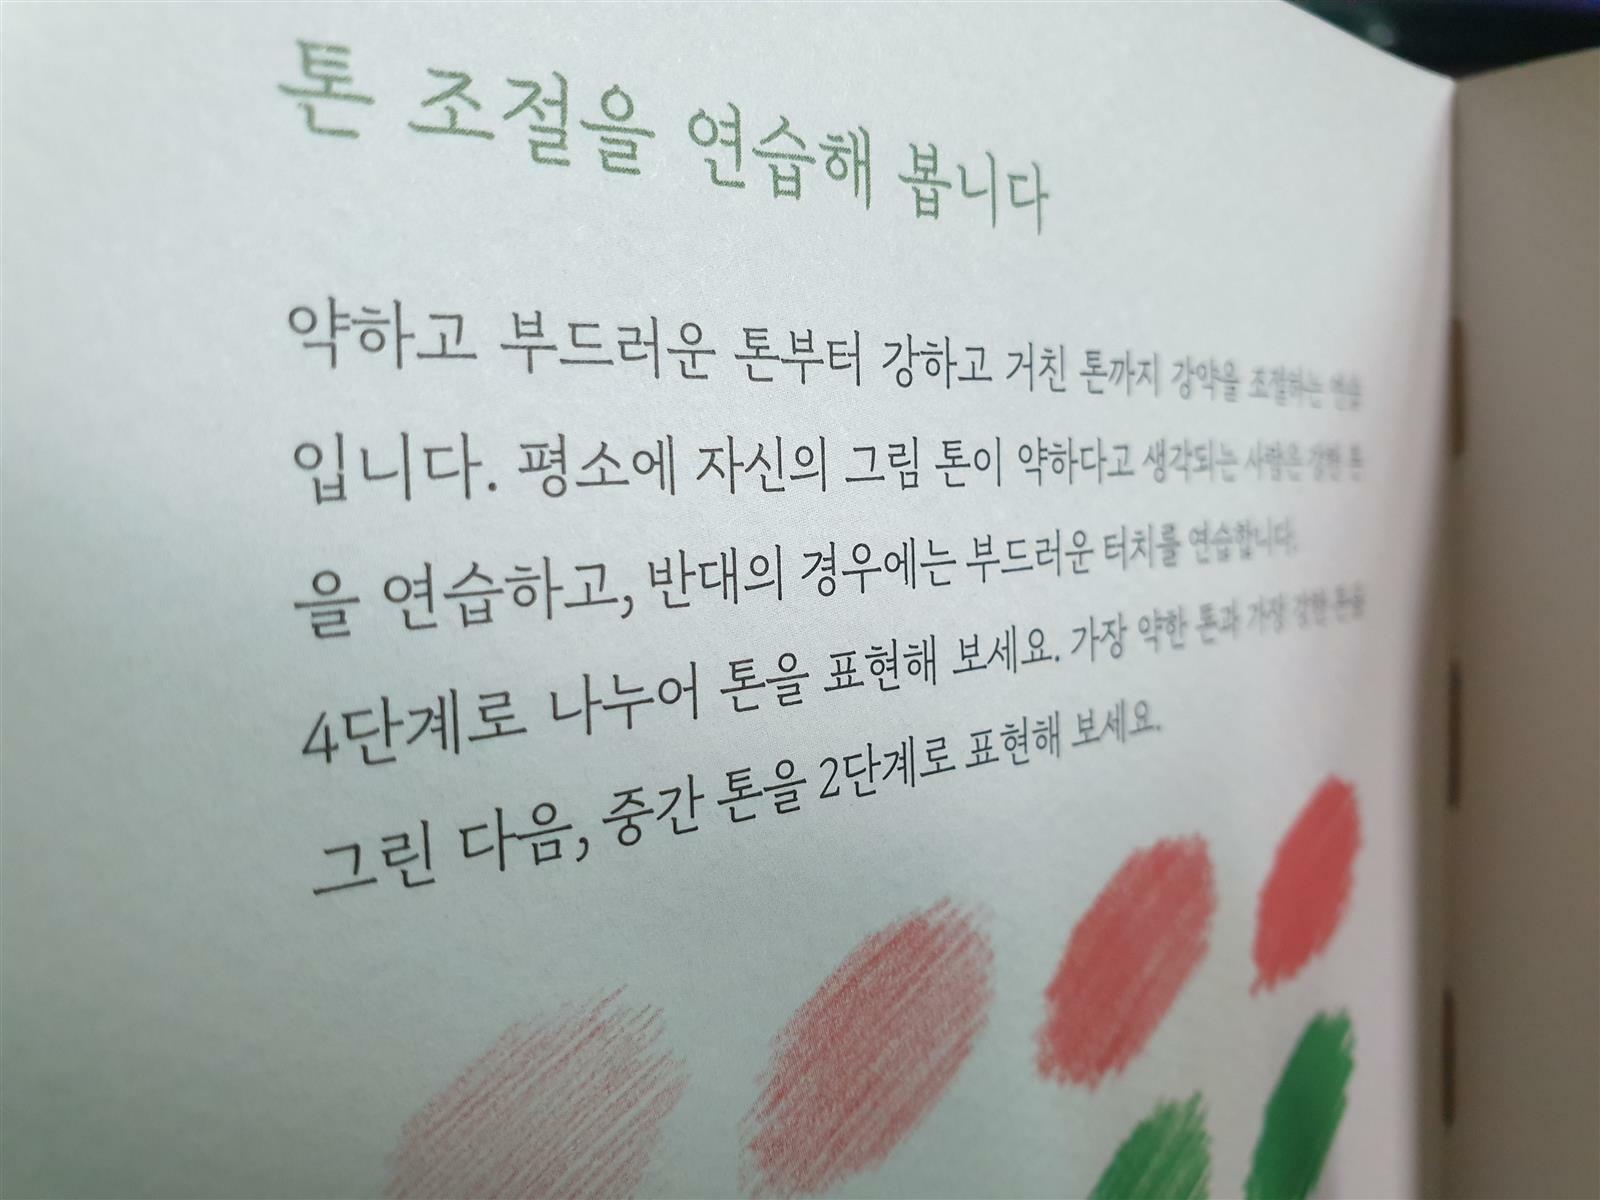 톤 조절을 연습해 봅니다
약하고 부드러운 톤부터 강하고 거친 톤까지 강약을 조절하는 연습
입니다. 평소에 자신의 그림 톤이 약하다고 생각되는 사람은 강한 톤
을 연습하고, 반대의 경우에는 부드러운 터치를 연습합니다.
4단계로 나누어 톤을 표현해 보세요. 가장 약한 톤과 가장 강한 톤을
그린 다음, 중간 톤을 2단계로 표현해 보세요.